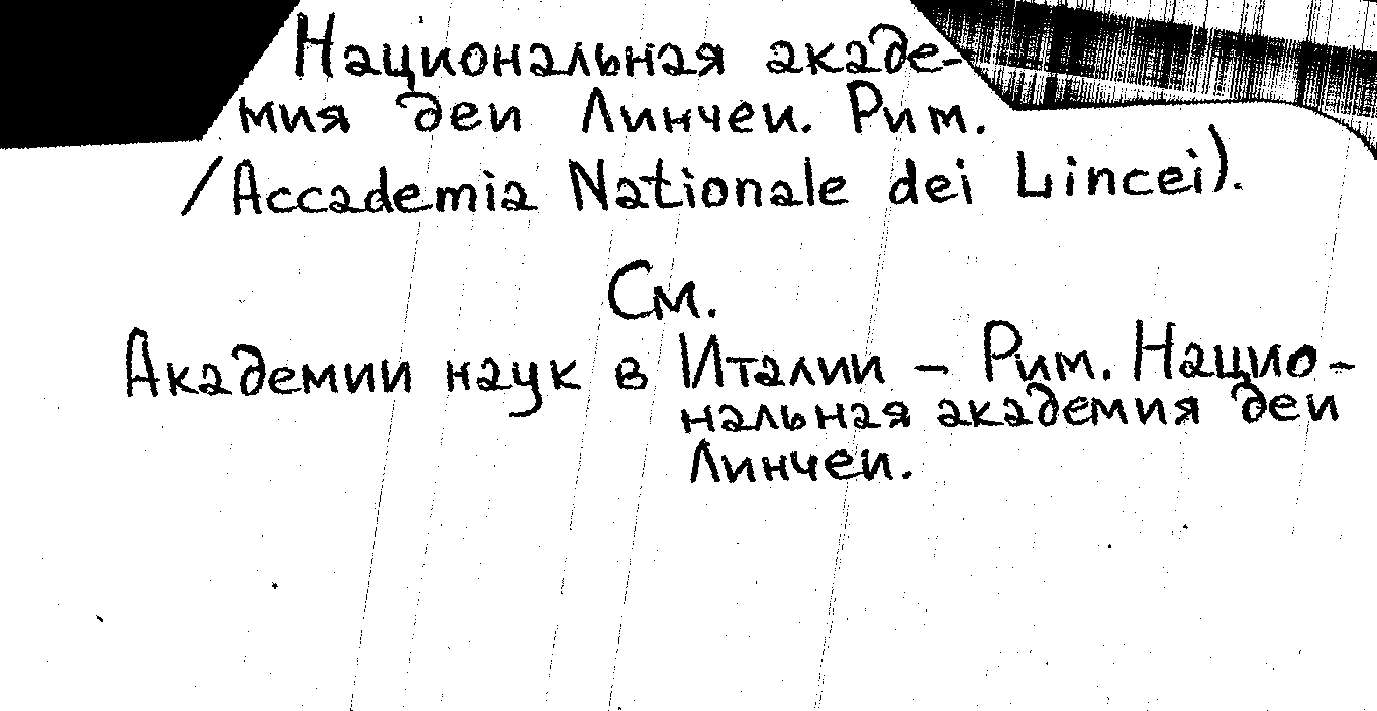 Национальная акаде-
мия деи Линчеи. Рим.
/Accademia Nationale dei Lincei).
См.
Академии наук в Италии – Рим. Нацио-
нальная академия деи
Линчеи.